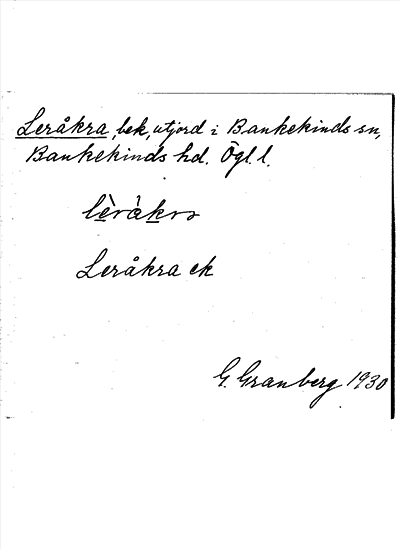 Leråkra, bek, utjord i Bankekinds sn,
Bankekinds hd. Ögl. l.
Leråkra ek
G. Granberg 1930